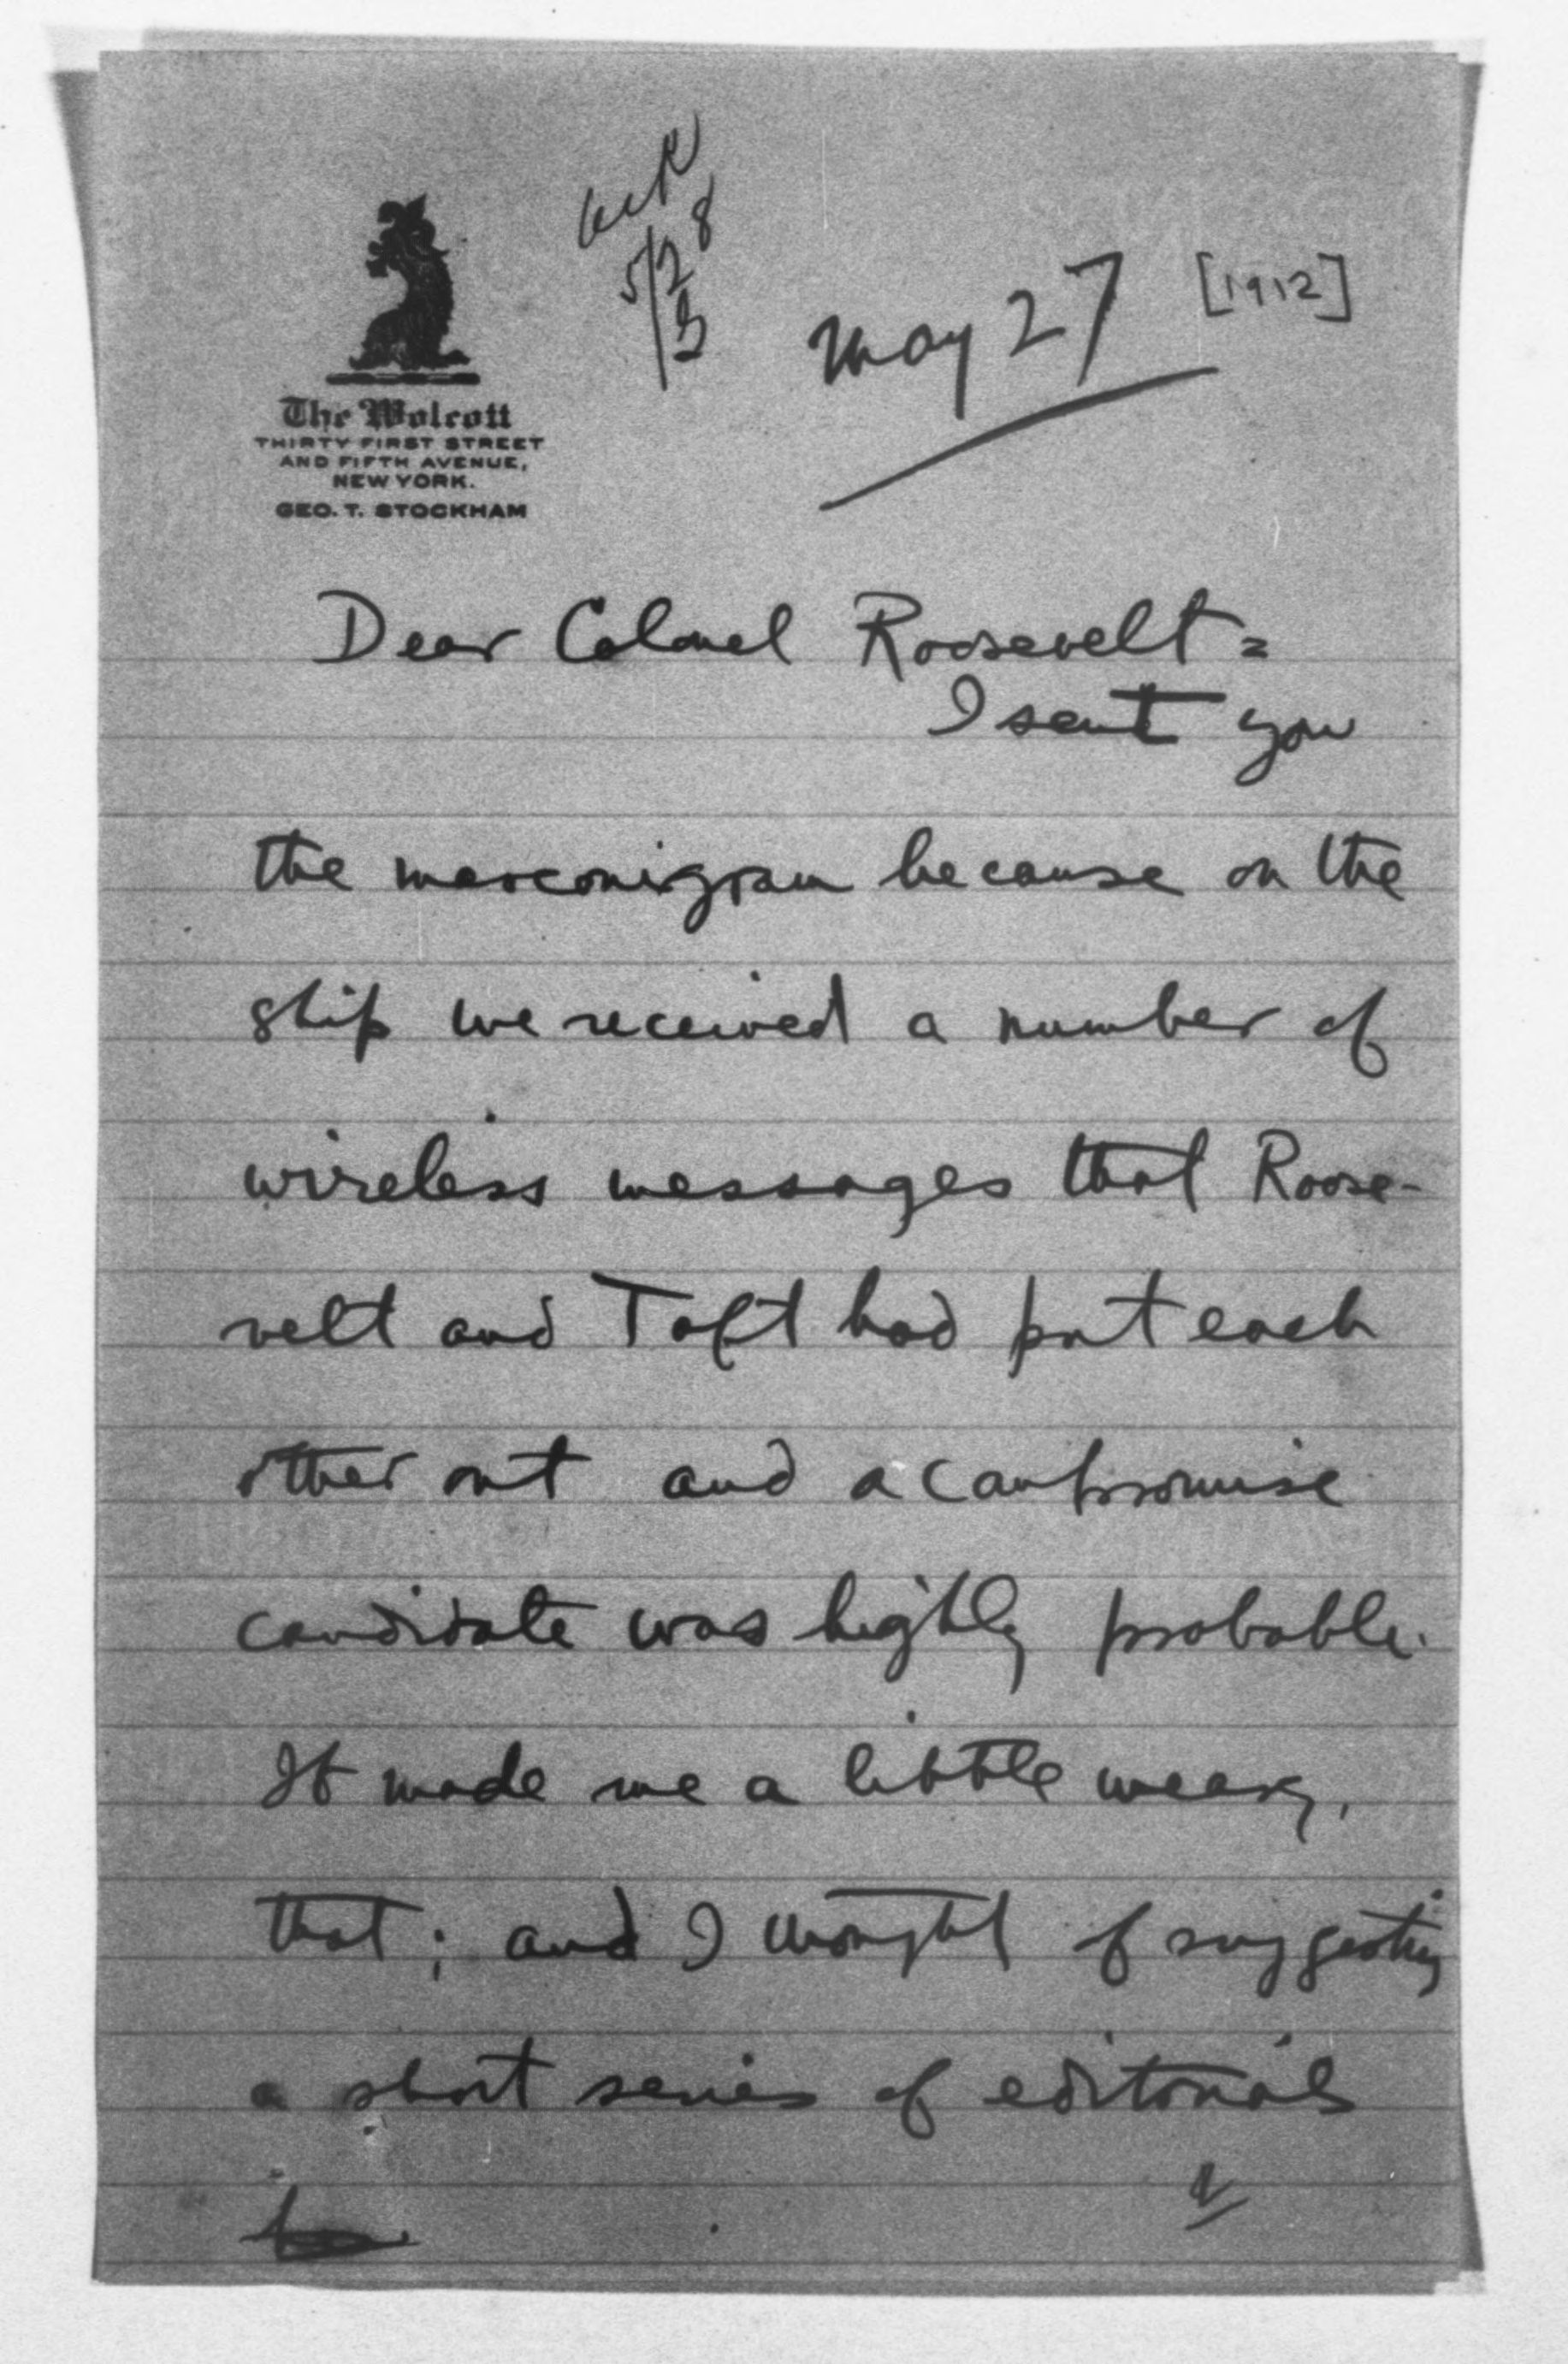 The Wolcott
THIRTY FIRST STREET
AND FIFTH AVENUE,
NEW YORK.
GEO. T. STOCKHAM
ack
5/28
May 27 [1912]
Dear Colonel Roosevelt =
I sent you
the marconigram because on the
ship we received a number of
wireless messages that Roose-
velt and Taft had put each
other out and a compromise
candidate was highly probable.
It made me a little weary,
that; and I thought of suggesting
a short series of editorials